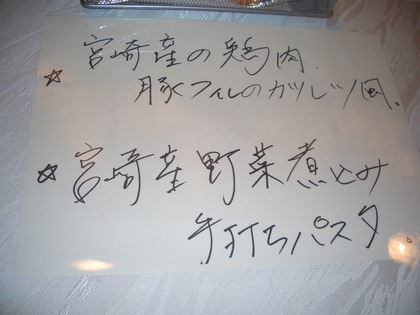 ☆ 宮崎産の鶏肉.
豚フィレのカツレツ風.
☆ 宮崎産野菜煮込み
手打ちパスタ